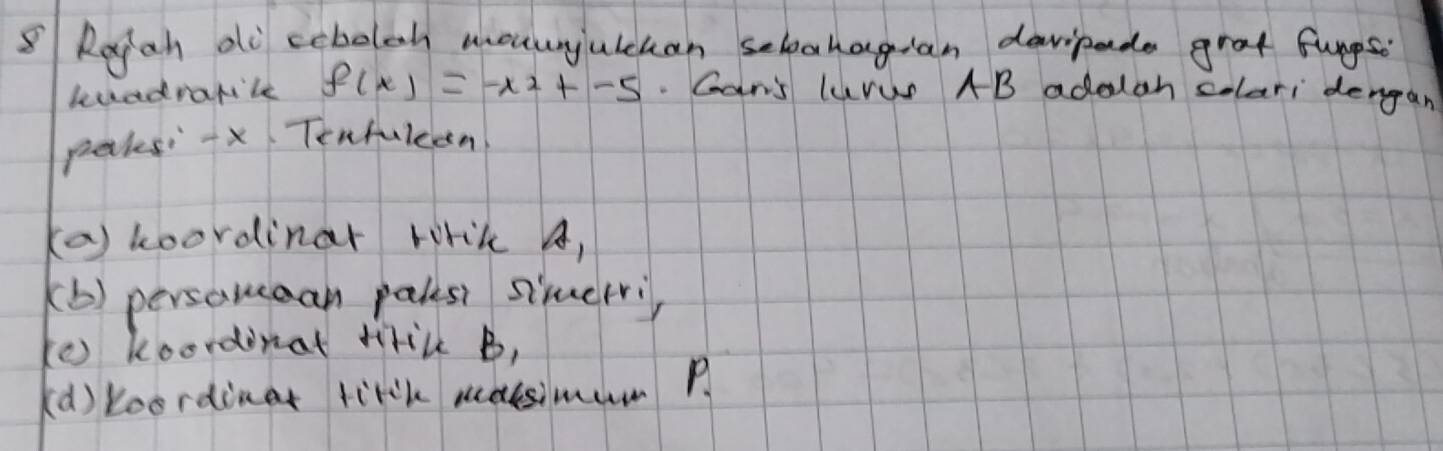 8 Rajah di sebelah menunjukkan sebahagian daripada graf fungsi
kuadratik f(x) = -x² + -5. Garis lurus AB adalah selari dengan
paksi -x. Tentukan.
(a) koordinat titik A,
(b) persamaan paksi simetri,
(c) koordinat titik B,
(d) koordinat titik maksimum P.